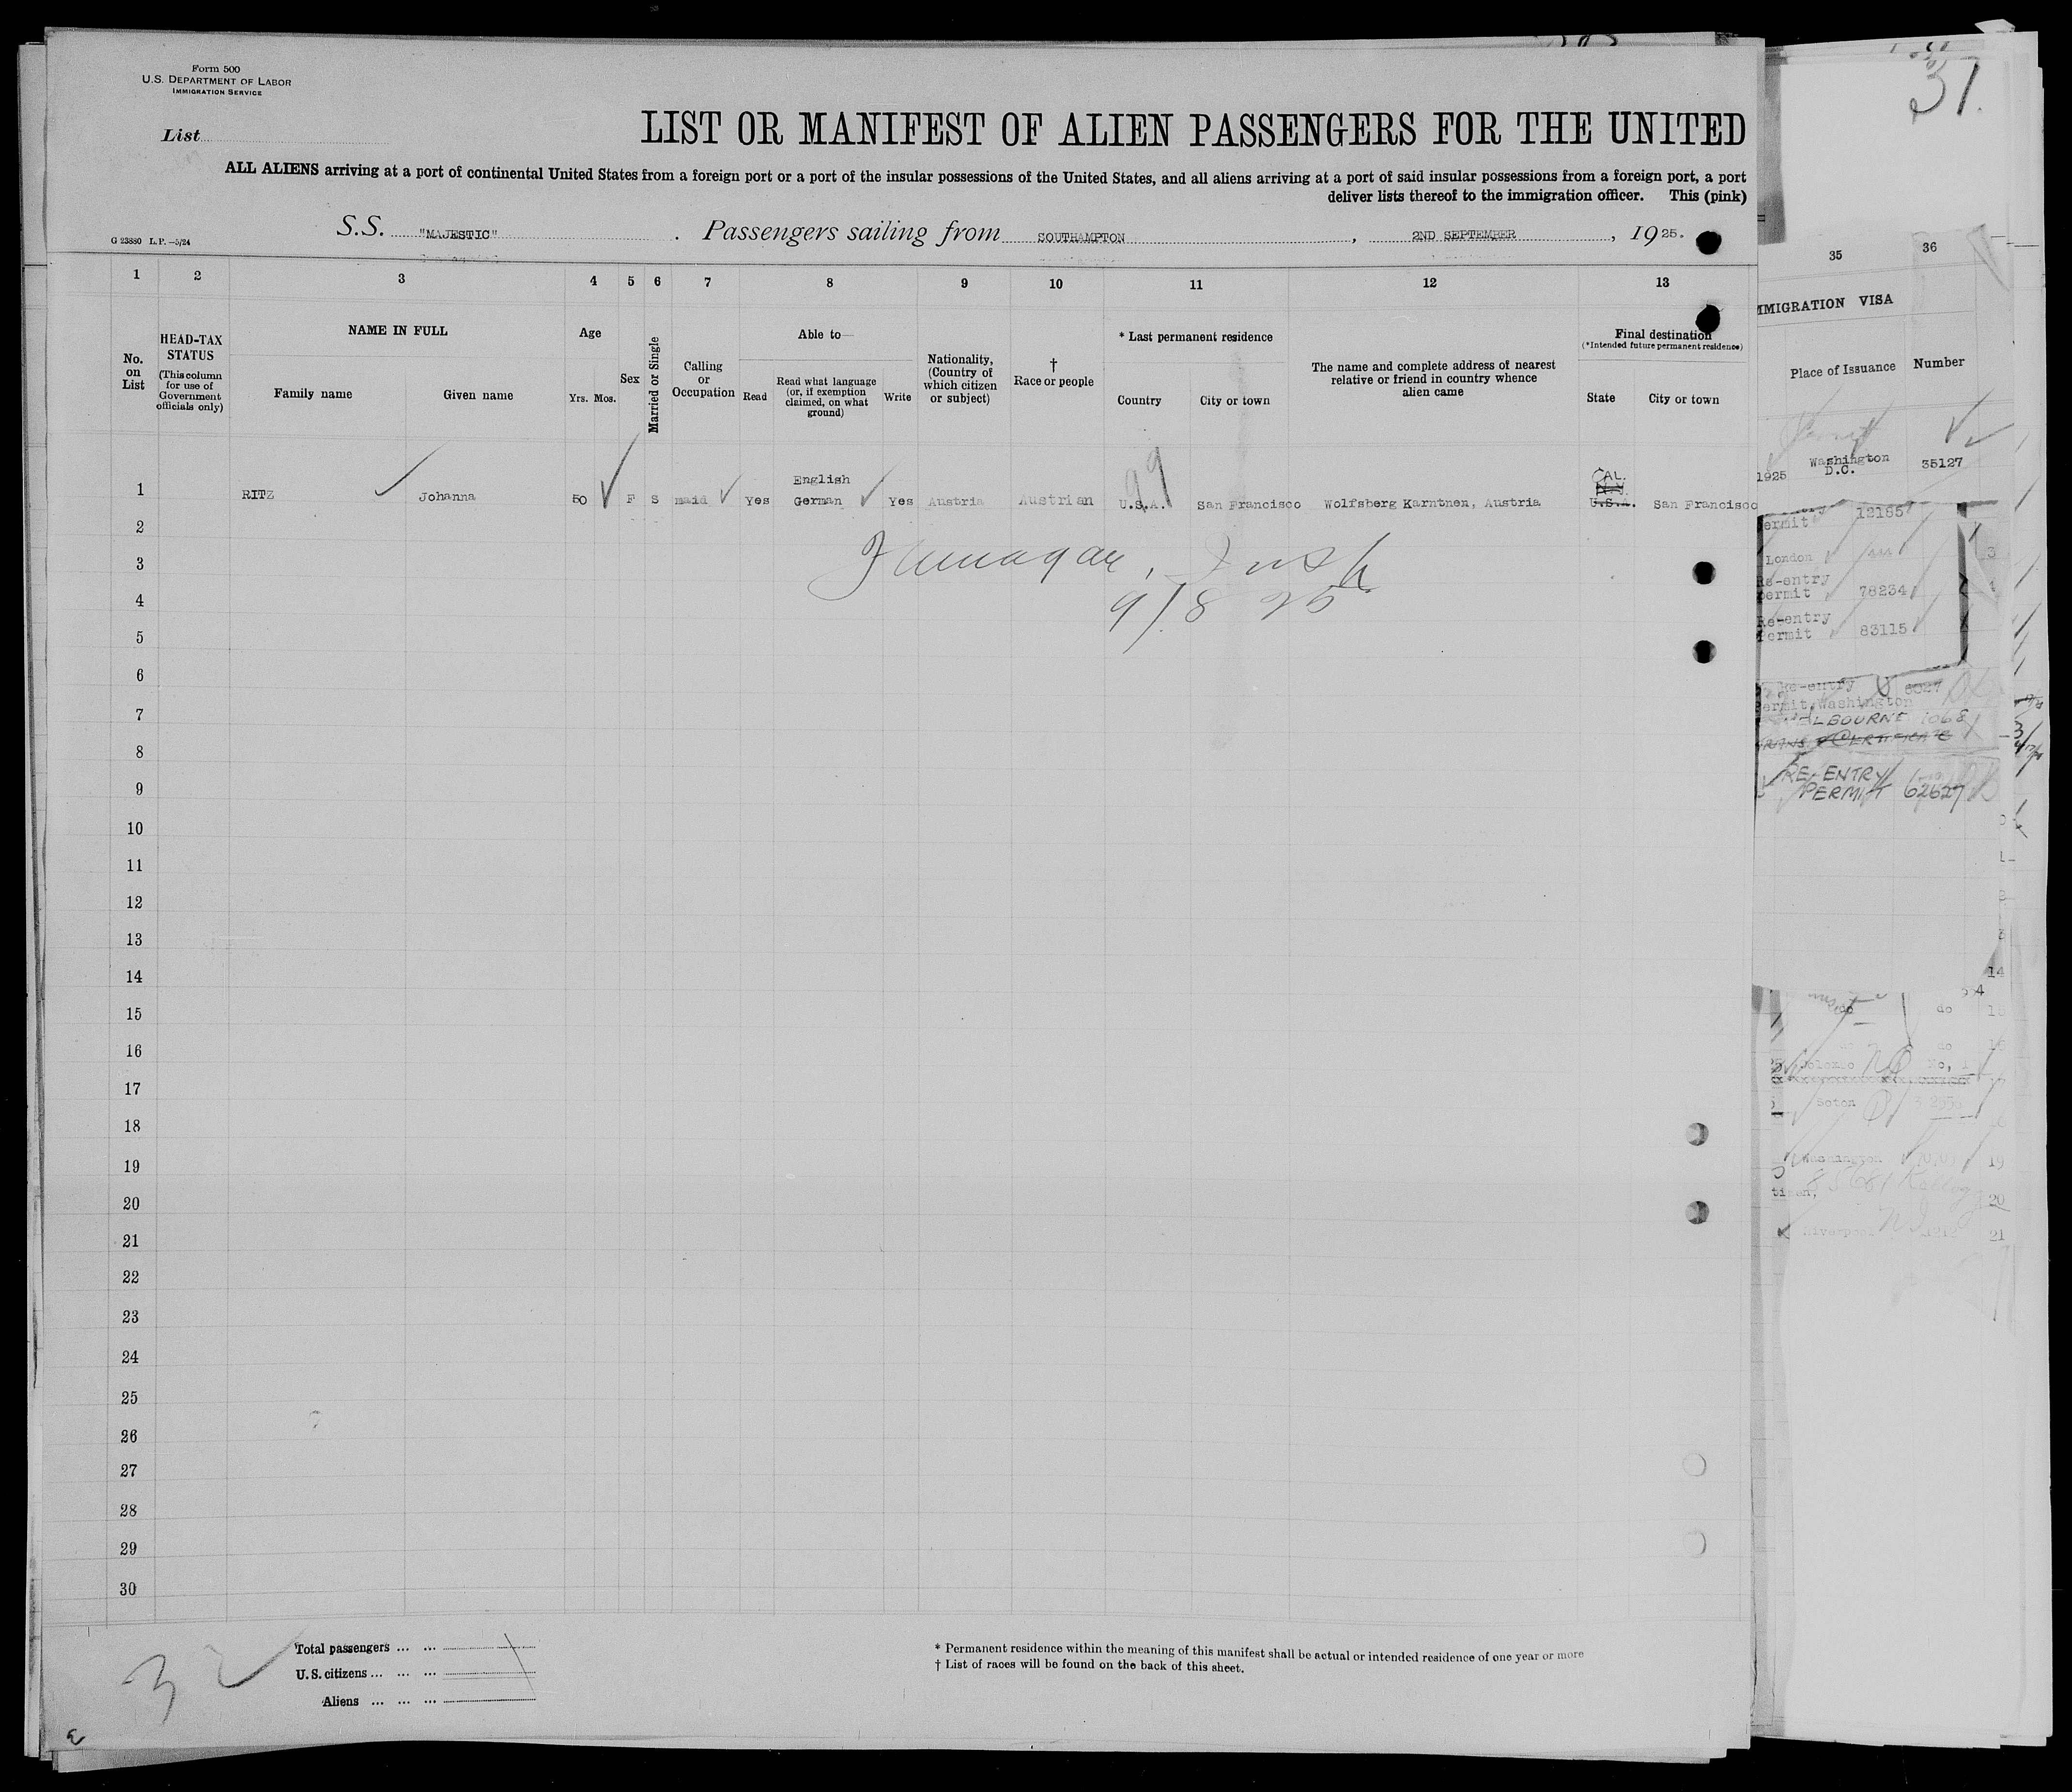 Form 500
U.S. DEPARTMENT OF LABOR
IMMIGRATION SERVICE
37.
List
LIST OR MANIFEST OF ALIEN PASSENGERS FOR THE UNITED
ALL ALIENS arriving at a port of continental United States from a foreign port or a port of the insular possessions of the United States, and all aliens arriving at a port of said insular possessions from a foreign port, a port
deliver lists thereof to the immigration officer. This (pink)
G 23880 L.P.—5/24
S.S. "MAJESTIC". Passengers sailing from SOUTHAMPTON, 2ND SEPTEMBER, 1925.
1 2 3 4 5 6 7 8 9 10 11 12 13 35 36
No. on List
HEAD-TAX STATUS
(This column for use of Government officials only)
NAME IN FULL
Family name
Given name
Age
Yrs. Mos.
Sex
Married or Single
Calling or Occupation
Able to—
Read
Read what language (or, if exemption claimed, on what ground)
Write
Nationality, (Country of which citizen or subject)
† Race or people
* Last permanent residence
Country
City or town
The name and complete address of nearest relative or friend in country whence alien came
Final destination
(*Intended future permanent residence)
State
City or town
MMIGRATION VISA
Place of Issuance
Number
1 RITZ Johanna 50 F S maid Yes English German Yes Austria Austrian U.S.A. San Francisco Wolfsberg Karntnen, Austria CAL. N.Y. U.S.A. San Francisco
99
1925 Washington D.C. 35127
9/8 25
2
3
4
5
6
7
8
9
10
11
12
13
14
15
16
17
18
19
20
21
22
23
24
25
26
27
28
29
30
ermit 12185
London
Re-entry
permit 78234
Re-entry
Permit 83115
Re-entry 8027
Permit, Washington
1068
TRANS. CERTIFICATE
RE-ENTRY
PERMIT 62627
14
do do
Soton
Washington 19
20
Liverpool 21
32
Total passengers ... ...
U.S. citizens ... ... ...
Aliens ... ... ...
* Permanent residence within the meaning of this manifest shall be actual or intended residence of one year or more
† List of races will be found on the back of this sheet.